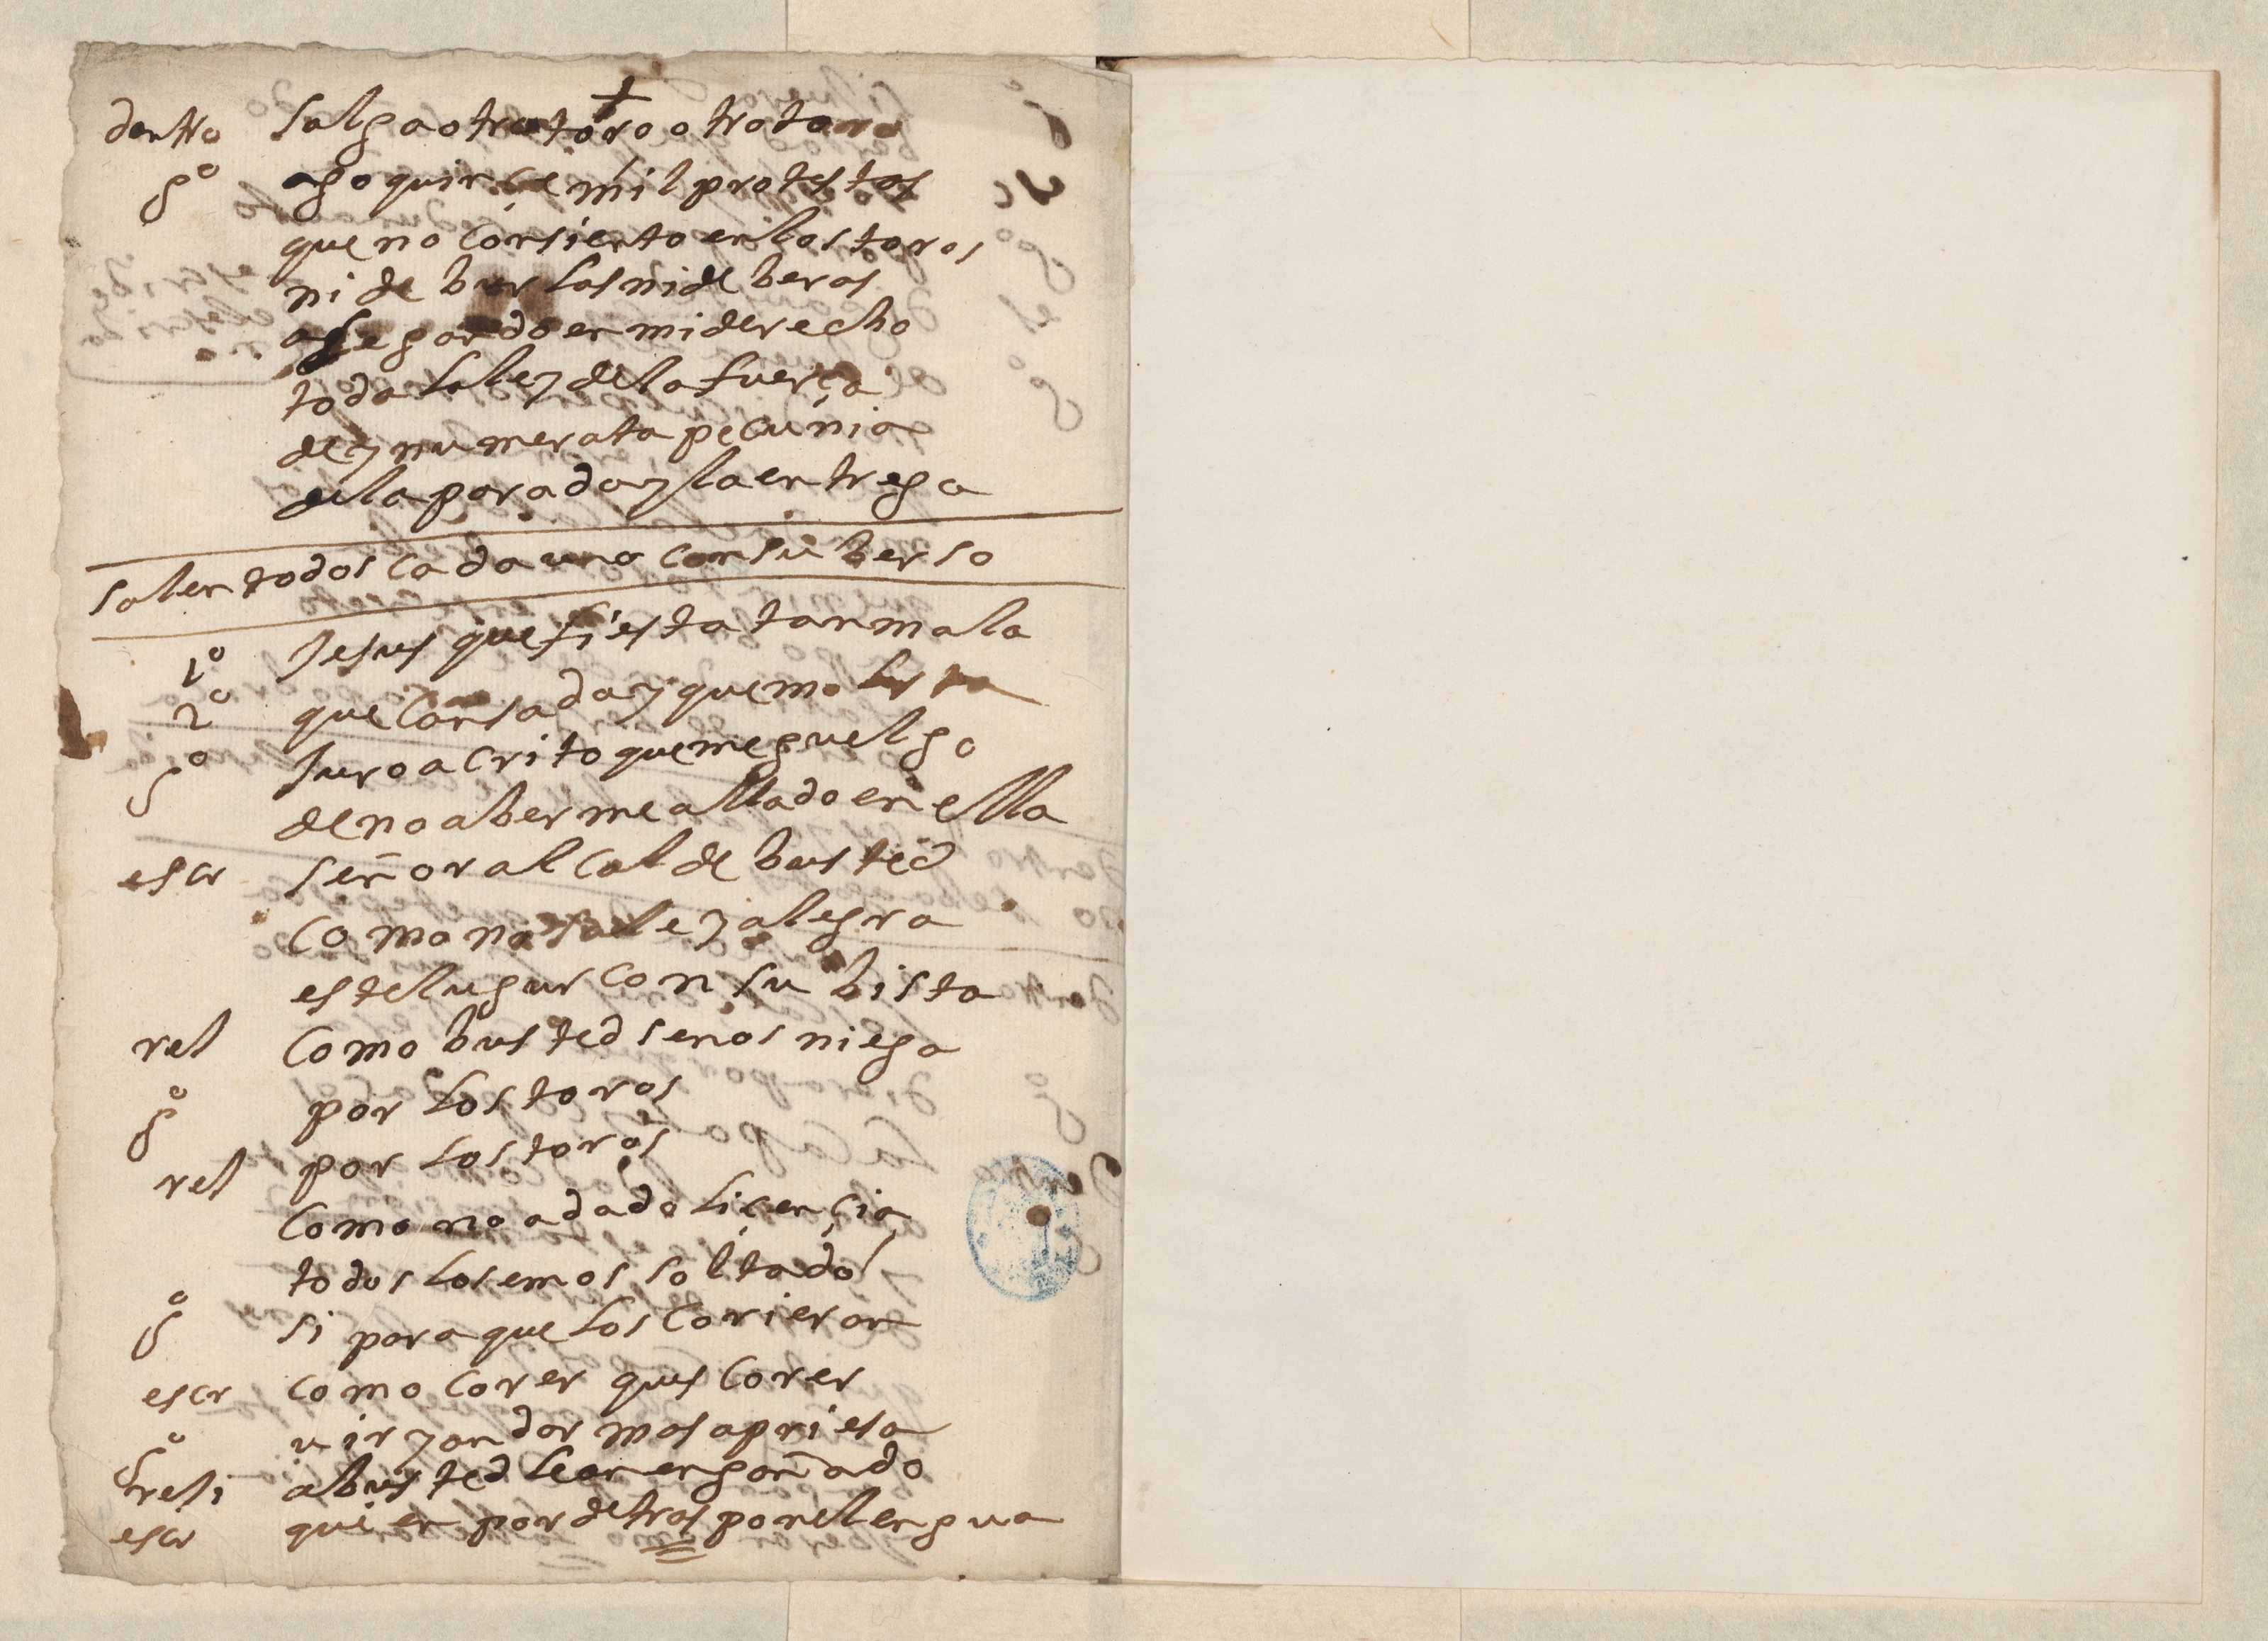 +
dentro salga otro toro otro toro
go ago quinçe mil protestos
que no consiento en los toros
ni de burlas ni de beras
alegando en mi derecho
toda la ley de la fuerça
de ynumerata pecunia
de la parada y la entrega
salen todos cada uno con su berso
1o Jesus que fiesta tan mala
2o que cansada y que molesta
go Juro a crito que me guelgo
de no aberme allado en ella
escr señor alcalde busted
como no sale y alegra
este lugar con su bista
rel como busted se nos niega
go por los toros
rel por los toros
como no a dado liçençia
todos los emos soltado
go si para que los corieran
escr como corer ques corer
go uir y andar mas apriesa
reli a busted le an engañado
escr quien por detras ponelengua